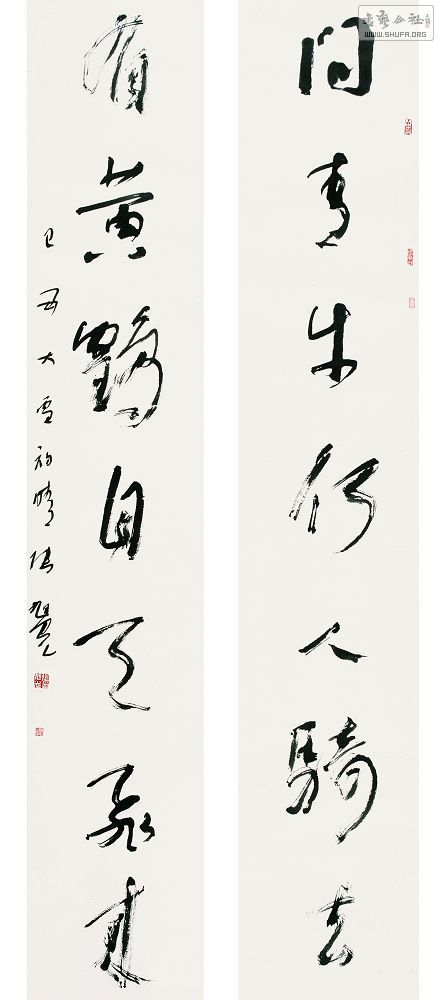 書藝公社
WWW.SHUFA.ORG
問青牛何人騎去
有黃鶴自天飛來
己丑大雪初晴張旭光